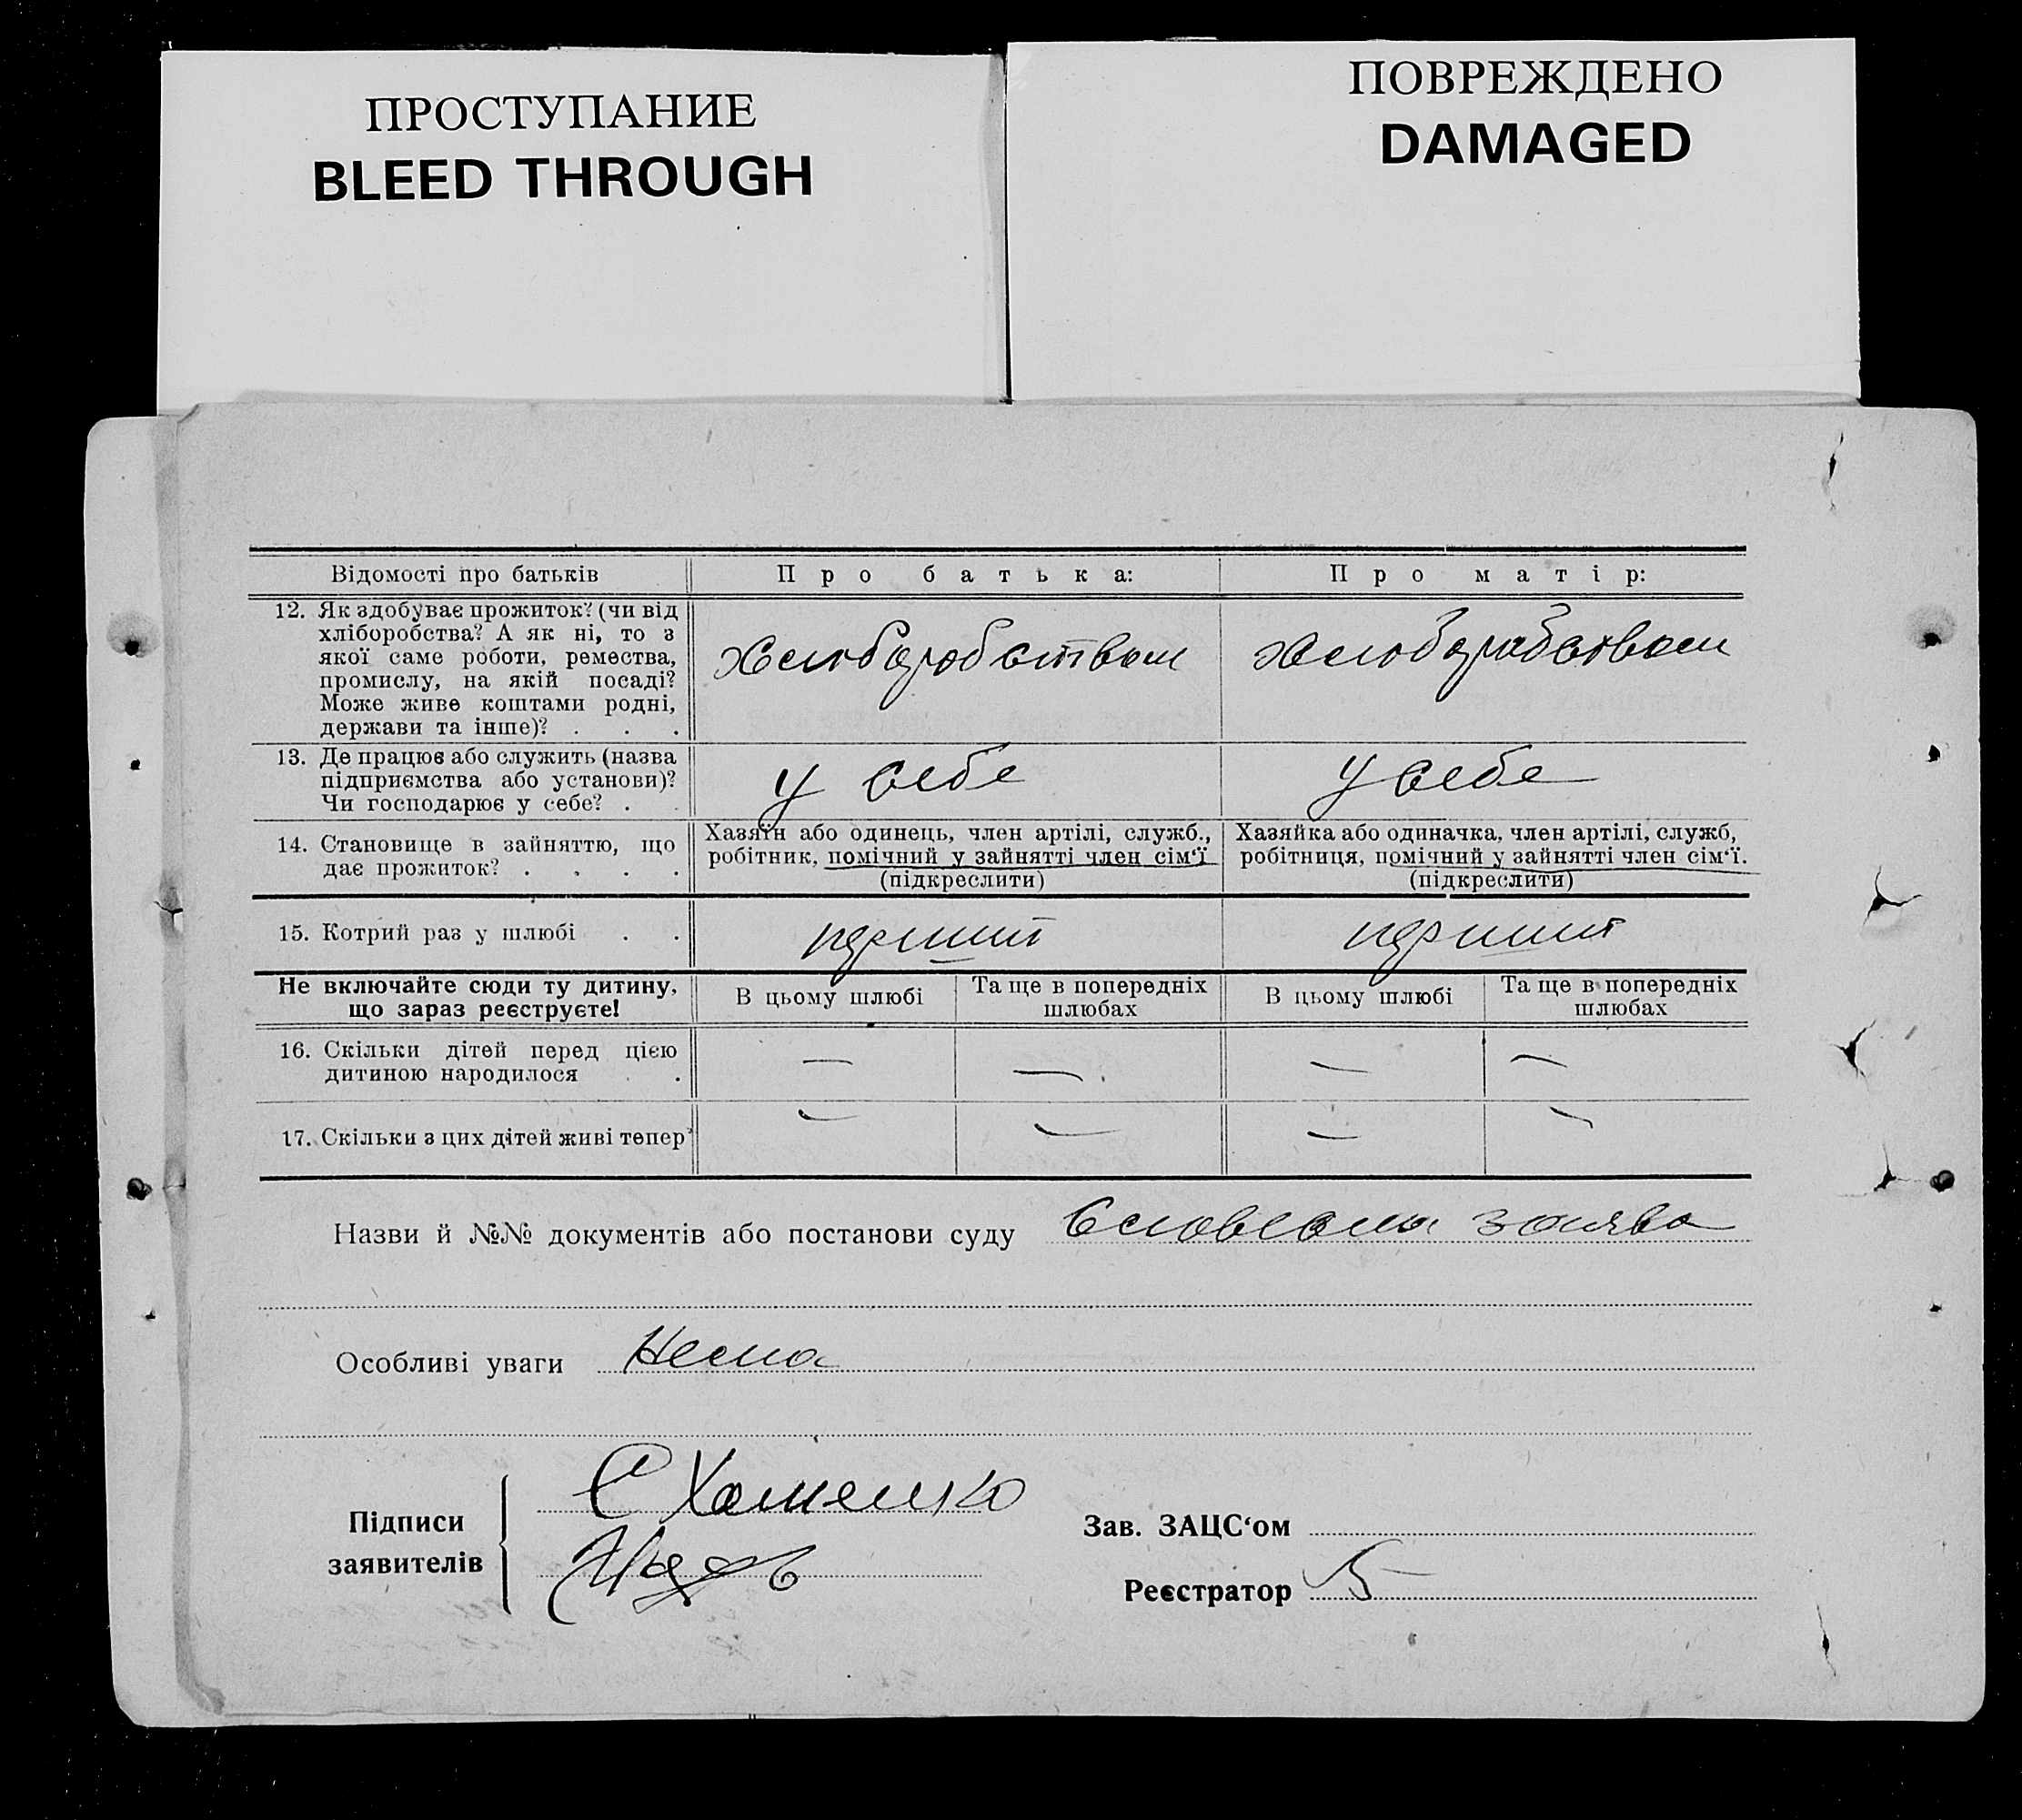 ПРОСТУПАНИЕ
BLEED THROUGH
ПОВРЕЖДЕНО
DAMAGED
Відомості про батьків Про батька: Про матір:
12. Як здобуває прожиток? (чи від
хліборобства? А як ні, то з
якої саме роботи, ремества,
промислу, на якій посаді?
Може живе коштами родні,
держави та інше)? . . .
хлюборобством хлюборобством
13. Де працює або служить (назва
підприємства або установи)?
Чи господарює у себе? . .
у себе у себе
14. Становище в зайняттю, що
дає прожиток? . . . .
Хазяїн або одинець, член артілі, служб.,
робітник, помічний у зайнятті член сім'ї
(підкреслити)
Хазяйка або одиначка, член артілі, служб,
робітниця, помічний у зайнятті член сім'ї.
(підкреслити)
15. Котрий раз у шлюбі . . перший перший
Не включайте сюди ту дитину,
що зараз реєструєте!
В цьому шлюбі Та ще в попередніх
шлюбах
В цьому шлюбі Та ще в попередніх
шлюбах
16. Скільки дітей перед цією
дитиною народилося . .
— — — —
17. Скільки з цих дітей живі тепер? — — — —
Назви й №№ документів або постанови суду словесна заява
Особливі уваги Нема
Підписи
заявителів
С Хоменко
Зав. ЗАЦС'ом
Реєстратор